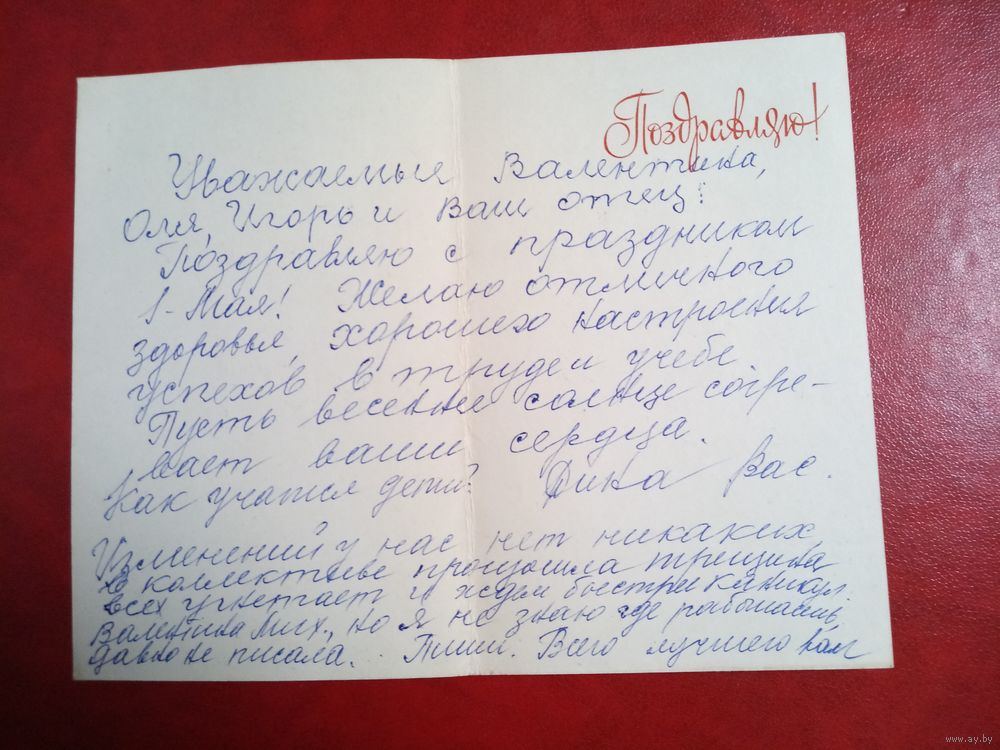 Поздравляю!
Уважаемые Валентина,
Оля, Игорь и Ваш отец!
Поздравляю с праздником
1-Мая! Желаю отличного
здоровья, хорошего настроения
успехов в труде и учебе.
Пусть весенне солнце согре-
вает ваши сердца.
Как учатся дети? Дина Вас.
Изменений у нас нет никаких
в коллективе произошла трещина
всех угнетает и ждем быстрей каникул.
Валентина Мих., но я не знаю где работаешь,
давно не писала. Пиши. Всего лучшего вам
www.ay.by